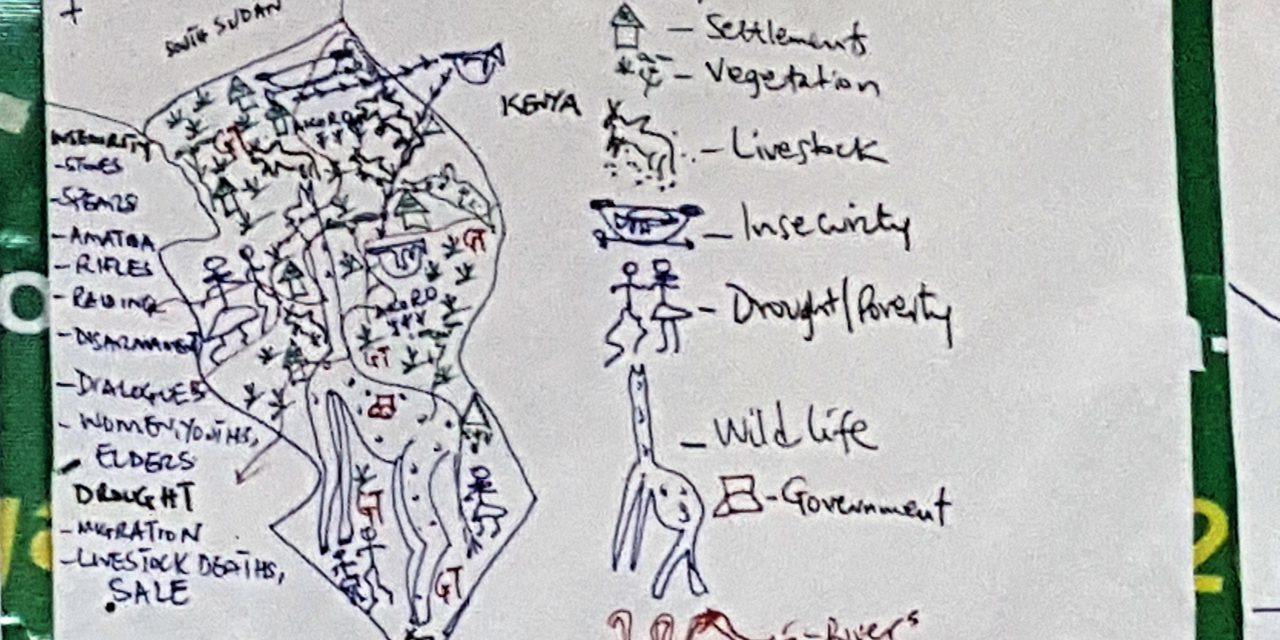 SOUTH SUDAN
KENYA
INSECURITY
- STONES
- SPEARS
- RIFLES
- RAIDING
- DISARMAMENT
- DIALOGUES
- WOMEN, YOUTHS,
ELDERS
DROUGHT
- MIGRATION
- LIVESTOCK DEATHS,
SALE
GT
GT
GT
GT
GT
- Settlement
- Vegetation
- Livestock
- Insecurity
- Drought/Poverty
- Wild life
- Government
- Rivers
2